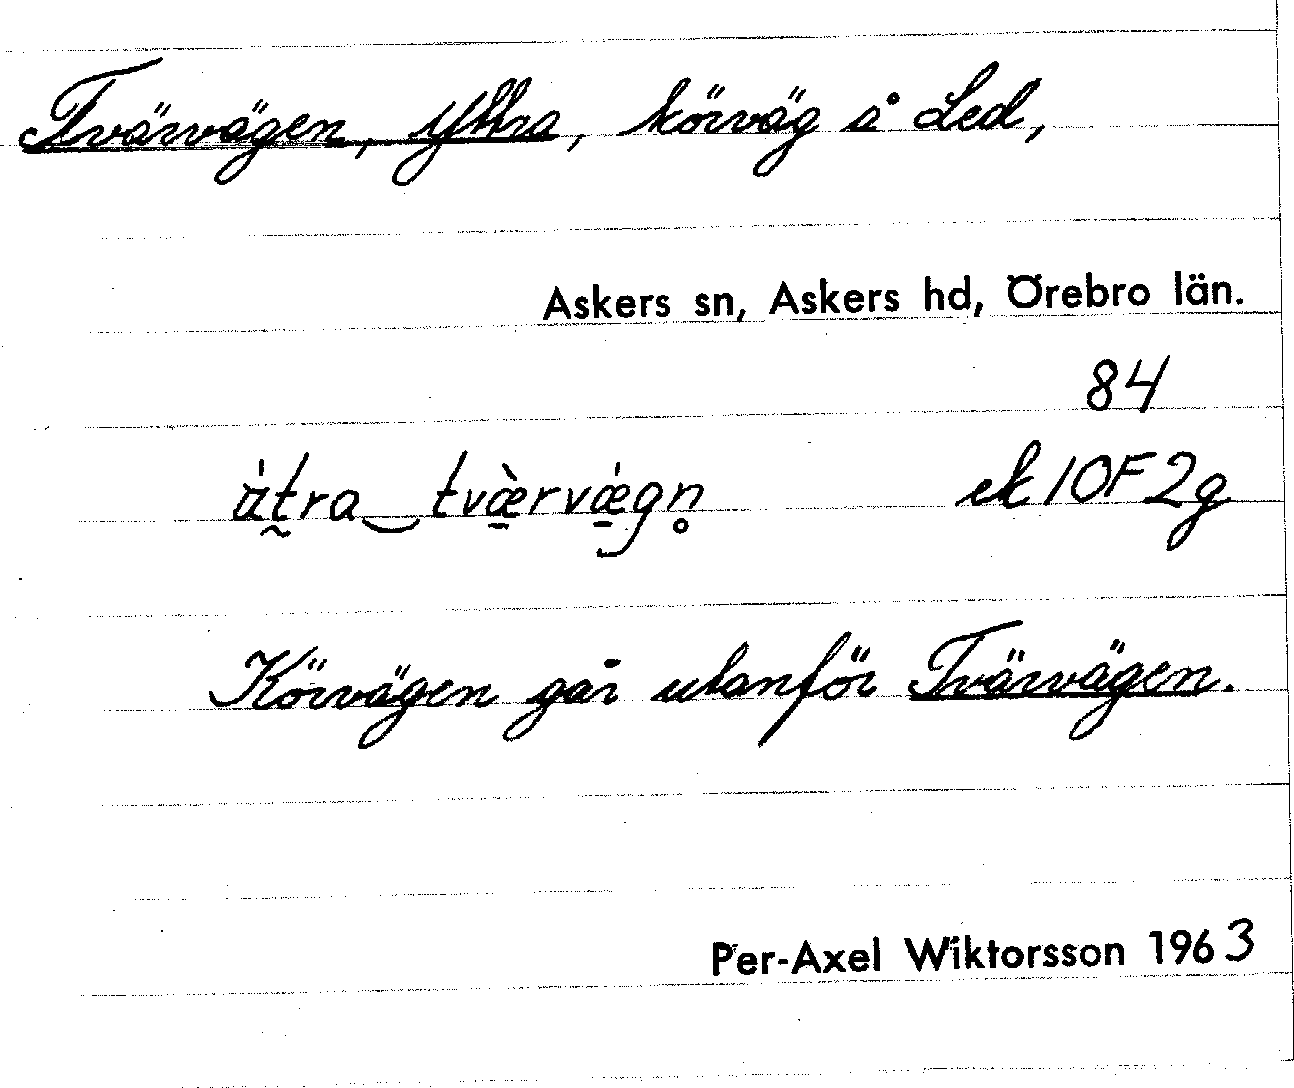 Tvärvägen, Yttra, körväg å Led,
Askers sn, Askers hd, Örebro län.
84
ú̈t̰ra‿tvæ̠̀rvǽ̠gn̥ ek 10F2g
Körvägen går utanför Tvärvägen.
Per-Axel Wiktorsson 1963